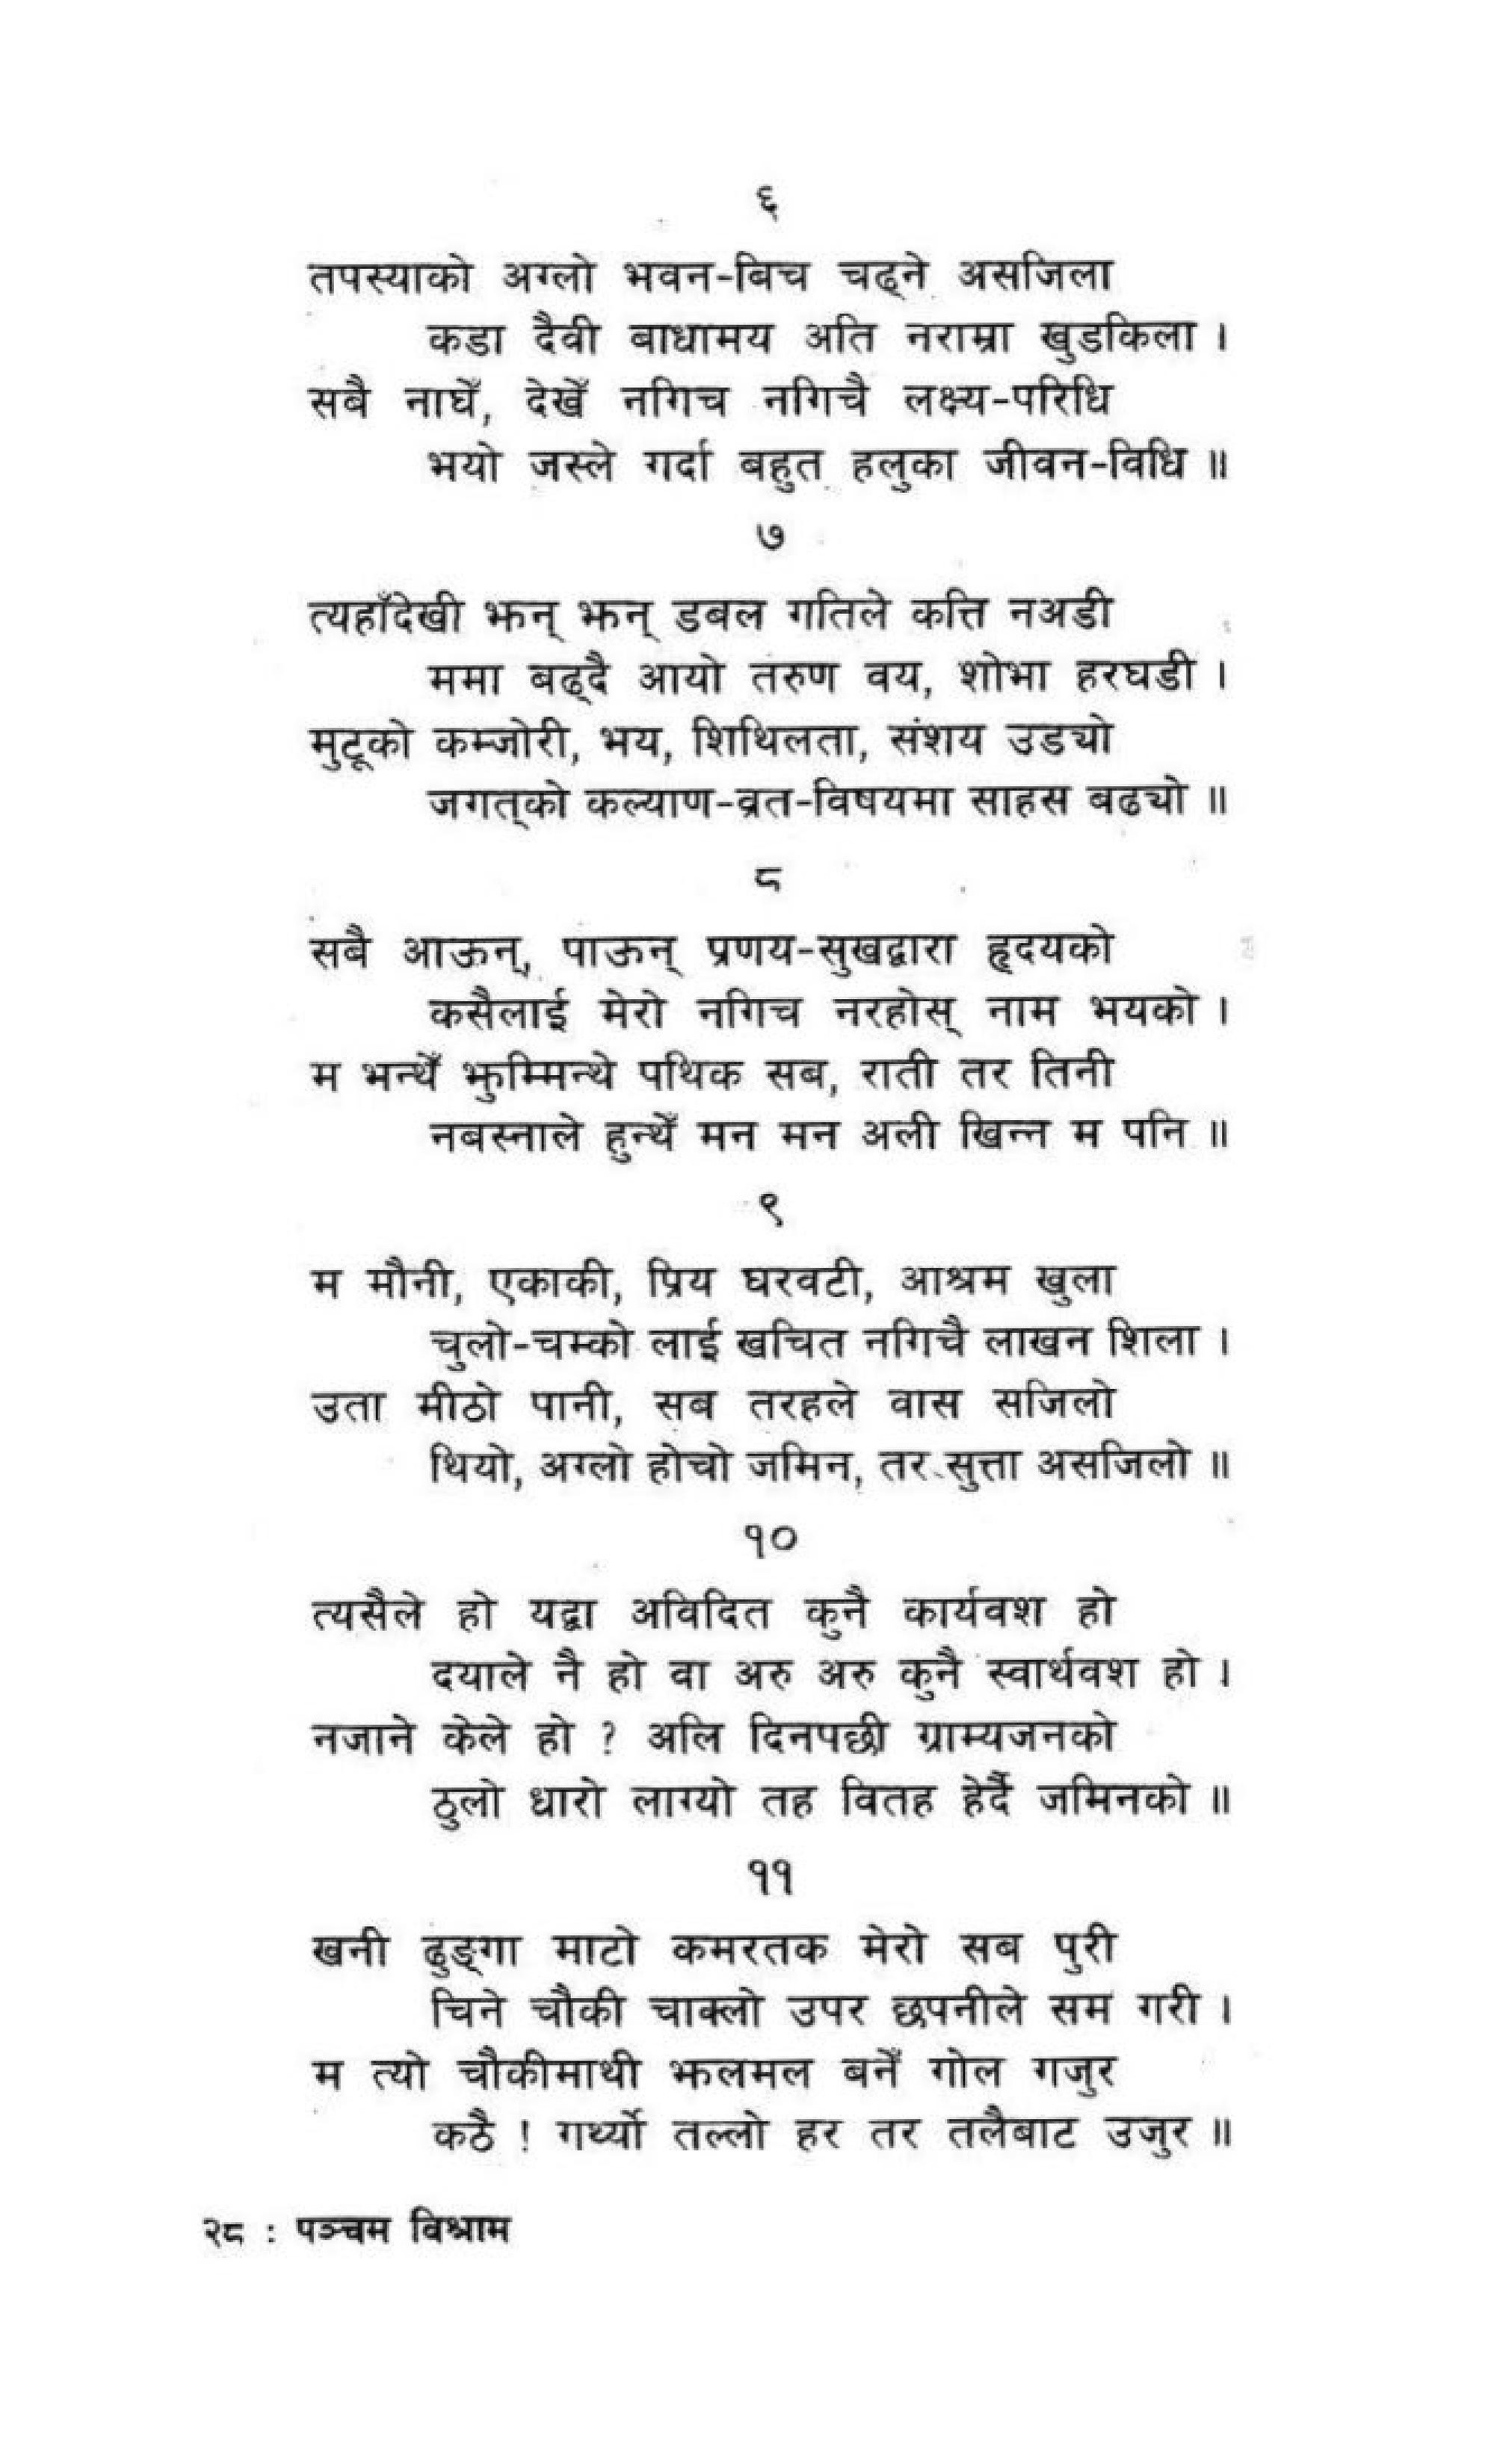 ६
तपस्याको अग्लो भवन-बिच चढ्ने असजिला
कडा दैवी बाधामय अति नराम्रा खुडकिला ।
सबै नाघेँ, देखेँ नगिच नगिचै लक्ष्य-परिधि
भयो जस्ले गर्दा बहुत हलुका जीवन-विधि ॥
७
त्यहाँदेखी झन् झन् डबल गतिले कत्ति नअडी
ममा बढ्दै आयो तरुण वय, शोभा हरघडी ।
मुटूको कम्जोरी, भय, शिथिलता, संशय उड्यो
जगत्‌को कल्याण-व्रत-विषयमा साहस बढ्यो ॥
८
सबै आऊन्, पाऊन् प्रणय-सुखद्वारा हृदयको
कसैलाई मेरो नगिच नरहोस् नाम भयको ।
म भन्थेँ झुम्मिन्थे पथिक सब, राती तर तिनी
नबस्नाले हुन्थेँ मन मन अली खिन्न म पनि ॥
९
म मौनी, एकाकी, प्रिय घरवटी, आश्रम खुला
चुलो-चम्को लाई खचित नगिचै लाखन शिला ।
उता मीठो पानी, सब तरहले वास सजिलो
थियो, अग्लो होचो जमिन, तर सुत्ता असजिलो ॥
१०
त्यसैले हो यद्वा अविदित कुनै कार्यवश हो
दयाले नै हो वा अरु अरु कुनै स्वार्थवश हो ।
नजाने केले हो ? अलि दिनपछी ग्राम्यजनको
ठुलो धारो लाग्यो तह वितह हेर्दै जमिनको ॥
११
खनी ढुङ्गा माटो कमरतक मेरो सब पुरी
चिने चौकी चाक्लो उपर छपनीले सम गरी ।
म त्यो चौकीमाथी झलमल बनेँ गोल गजुर
कठै ! गर्थ्यो तल्लो हर तर तलैबाट उजुर ॥
२८ : पञ्चम विश्राम